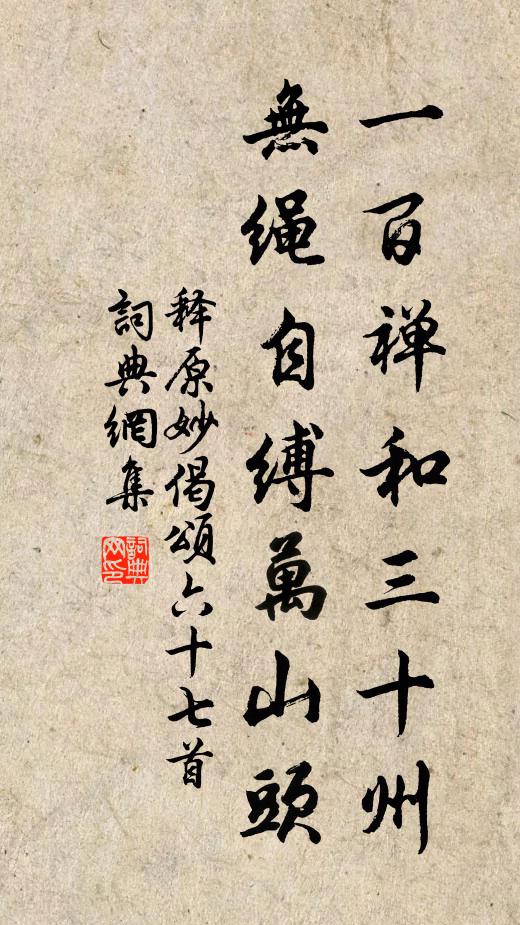 一百禅和三十州
無绳自缚萬山頭
释原妙偈頌六十七首
詞典網集
詞典网印